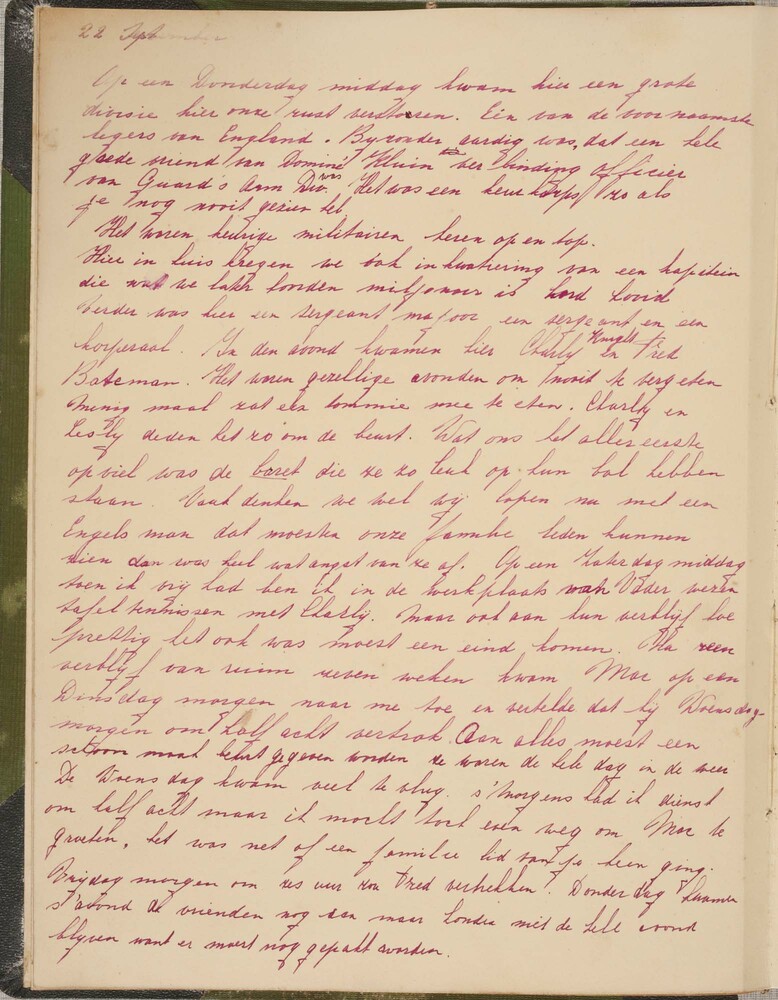 22 September
Op een Donderdag middag kwam hier een grote
divisie hier onze rust verstoren. Eén van de voornaamste
legers van England. Byzonder aardig was, dat een hele
goede vriend van Dominé Kluin verbinding officier
van Guard's Arm Div. was Het was een keurkorps zo als
je nog nooit gezien heb.
Het waren keurige militairen heren op en top.
Hier in huis kregen we óók inkwatiering van een kapitein
die we later honden miljonair is
Verder was hier een sergeant majoor een sergeant en een
korperaal. In den avond kwamen hier Charly Knight en Fred
Bateman. Het waren gezellige avonden om nooit te vergeten
Menig maal zat één tommie mee te eten. Charly en
Lesly deden het zo om de beurt. Wat ons het allereerste
op viel was de baret die ze zo leuk op hun bol hebben
staan. Vaak denken we wel wij lopen nu met een
Engels man dat moesten onze familie leden kunnen
zien dan was heel wat angst van ze af. Op een Zaterdag middag
toen ik vrij had ben ik in de werkplaats van Vader wezen
tafeltennissen met Charly. Maar ook aan hun verblijf hoe
prettig het ook was moest een eind komen. Na een
verblijf van ruim zeven weken kwam Mac op een
Dinsdag morgen naar me toe en vertelde dat hij Woensdag-
morgen om half acht vertrok. Aan alles moest een
schoon maak beurt gegeven worden ze waren de hele dag in de weer
De Woensdag kwam veel te vlug. s'Morgens had ik dienst
om half acht maar ik mocht toch even weg om Mac te
groeten, het was net of een familie lid van je heen ging.
Vrijdag morgen om zes uur zou Fred vertrekken. Donderdag kwamen
s'avond de vrienden nog aan maar konden niet de hele avond
blyven want er moest nog gepakt worden.